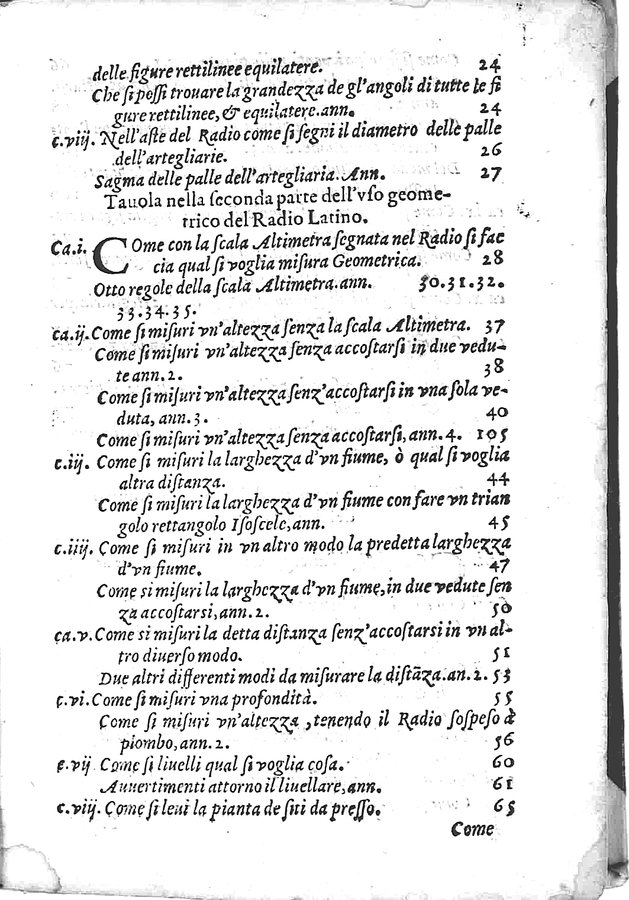 delle figure rettilinee equilatere. 24
Che si possi trouare la grandezza de gl'angoli di tutte le fi
gure rettilinee, & equilatere. ann. 24
c.viij. Nell'aste del Radio come si segni il diametro delle palle
dell'artegliarie. 26
Sagma delle palle dell'artegliaria. Ann. 27
Tauola nella seconda parte dell'vso geome-
trico del Radio Latino.
Ca.i. COme con la scala Altimetra segnata nel Radio si fac
cia qual si voglia misura Geometrica. 28
Otto regole della scala Altimetra. ann. 30.31.32.
33.34.35.
ca.ij. Come si misuri vn'altezza senza la scala Altimetra. 37
Come si misuri vn'altezza senza accostarsi in due vedu-
te ann. 2. 38
Come si misuri vn'altezza senz'accostarsi in vna sola ve-
duta, ann. 3. 40
Come si misuri vn'altezza senza accostarsi, ann. 4. 105
c.iij. Come si misuri la larghezza d'vn fiume, ò qual si voglia
altra distanza. 44
Come si misuri la larghezza d'vn fiume con fare vn trian
golo rettangolo Isoscele, ann. 45
c.iiij. Come si misuri in vn altro modo la predetta larghezza
d'vn fiume. 47
Come si misuri la larghezza d'vn fiume, in due vedute sen
za accostarsi, ann. 2. 50
ca.v. Come si misuri la detta distanza senz'accostarsi in vn al-
tro diuerso modo. 51
Due altri differenti modi da misurare la distãza. an. 2. 53
c.vi. Come si misuri vna profondità. 55
Come si misuri vn'altezza, tenendo il Radio sospeso à
piombo, ann. 2. 56
c.vij Come si liuelli qual si voglia cosa. 60
Auuertimenti attorno il liuellare, ann. 61
c.viij. Come si leui la pianta de siti da presso. 65
Come